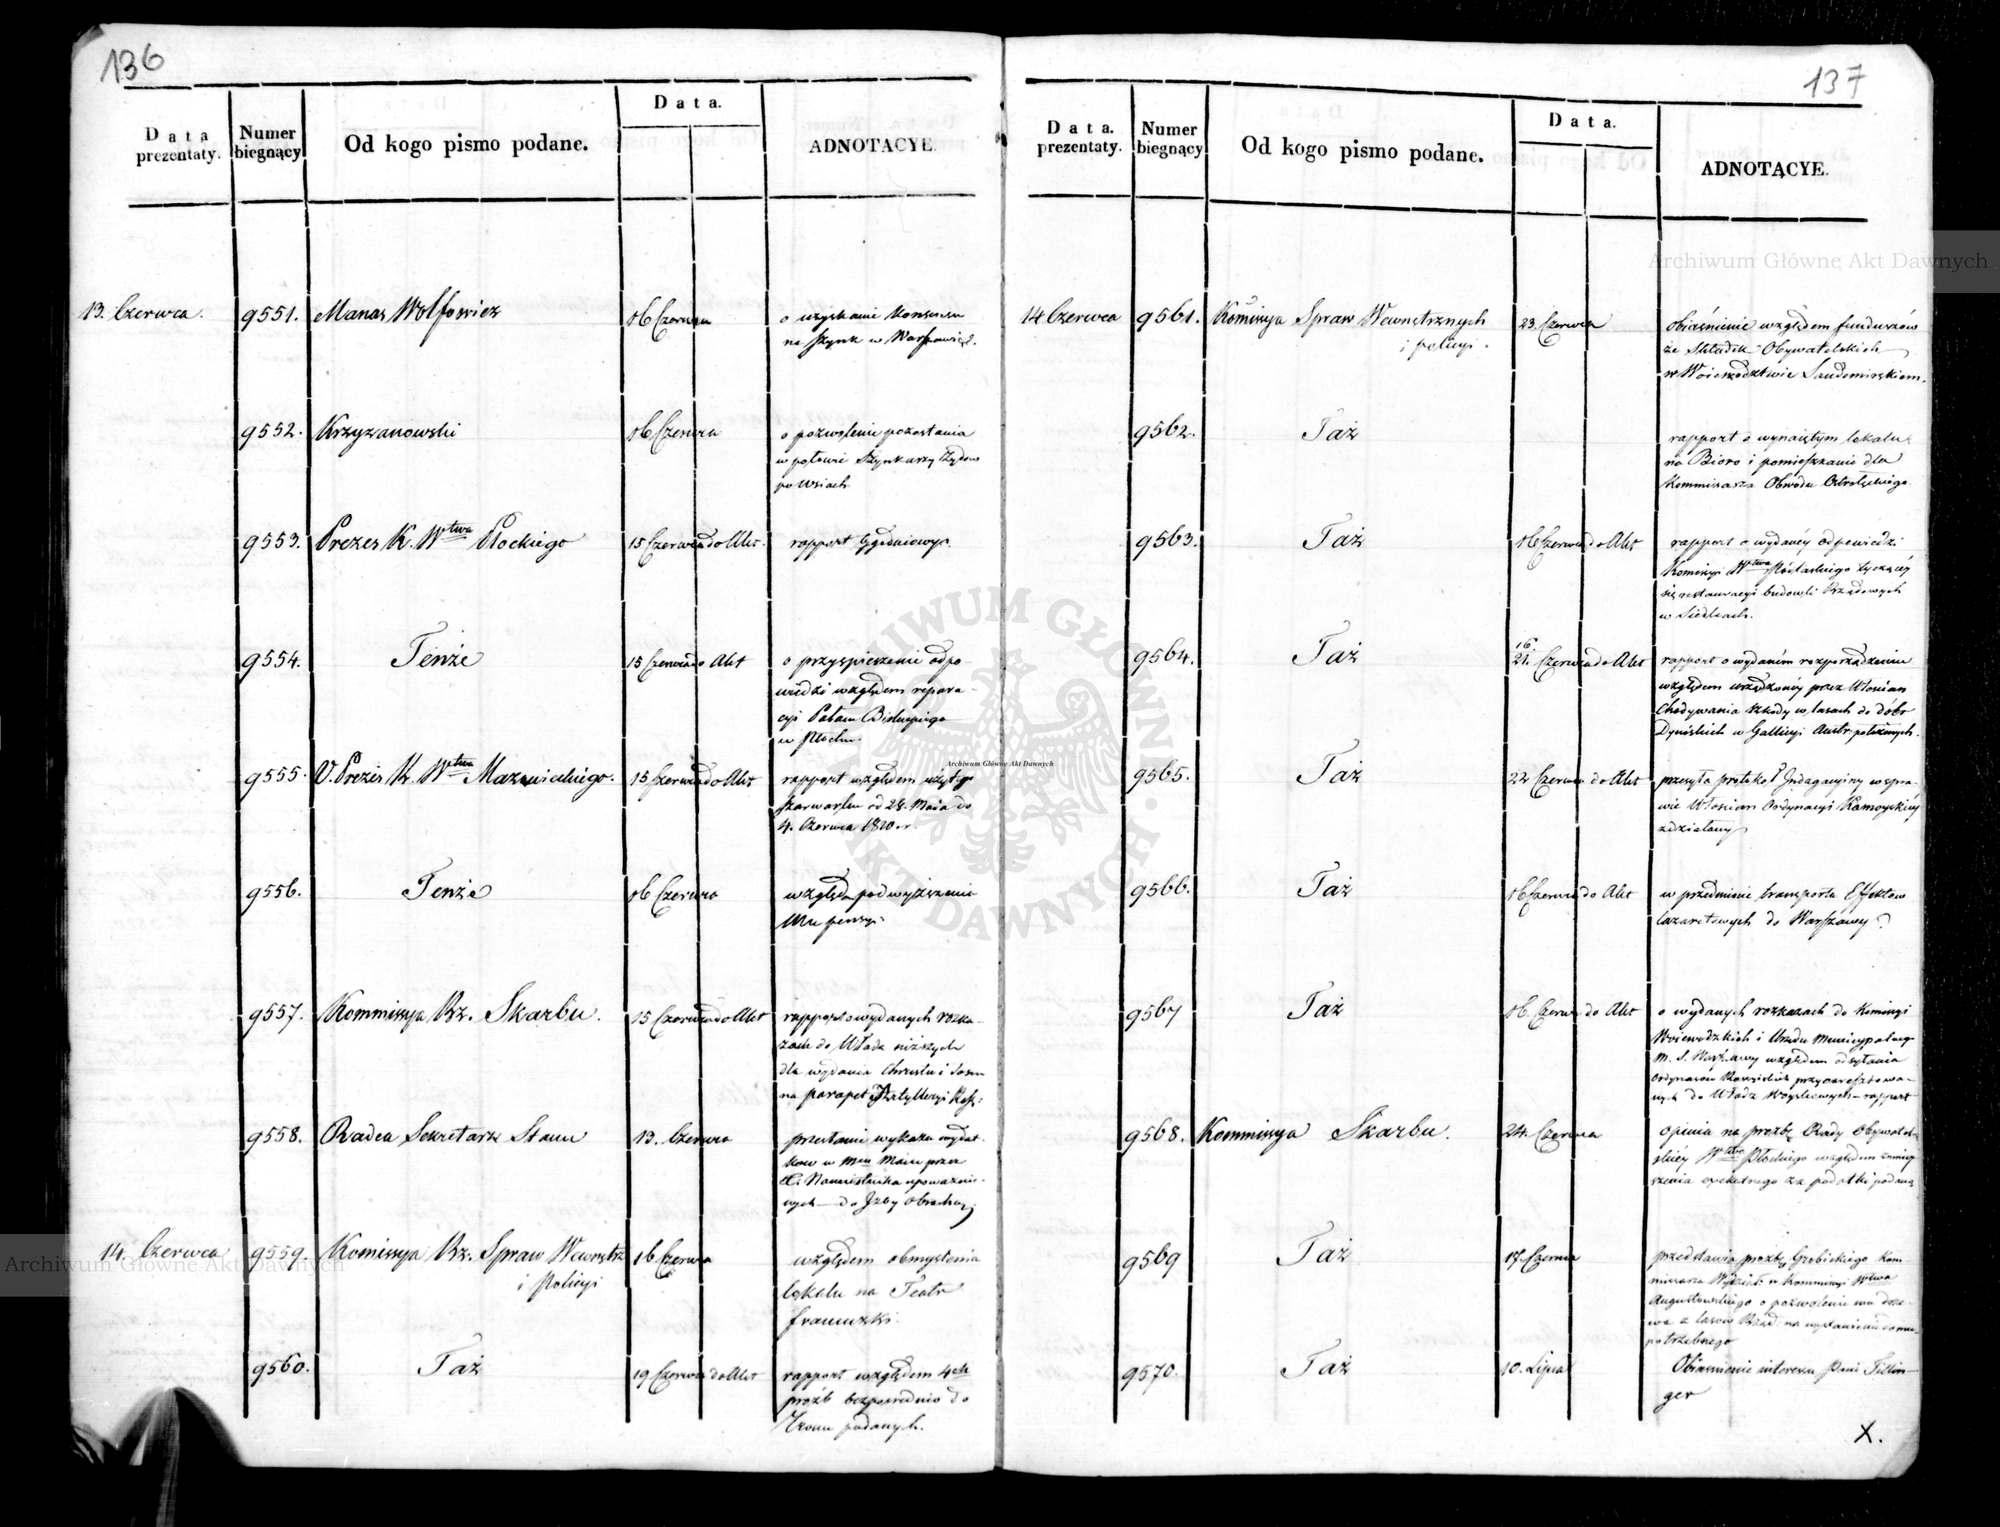 136
Data prezentaty.
Numer biegnący
Od kogo pismo podane.
Data.
ADNOTACYE.
13. Czerwca.
9551.
Manas Wolfowicz
16 Czerwca
o uzyskanie Konsensu
na szynk w Warszawie.
9552.
Krzyzanowski
16 Czerwca
o pozwolenie pozostania
w połowie Szynkarzy Żydow
po wsiach
9553.
Prezes K. Wtwa Płockiego
15 Czerwca do Akt.
rapport tygodniowy.
9554.
Tenże
15 Czerwca do Akt
o przyspieszenie odpo-
wiedzi względem repara-
cyi Pałacu Biskupiego
w Płocku.
9555.
V. Prezes K. Wtwa Mazowieckiego.
15 Czerwca do Akt
rapport względem użytego
szarwarku od 28. Maia do
4. Czerwca 1820. r.
9556.
Tenże
16 Czerwca
względem podwyższenia
Mu pensyi
9557.
Kommissya Rz. Skarbu.
15 Czerwca do Akt
rapport o wydanych rozka-
zach do Władz niższych
dla wydania
na parapet Artylleryi
9558.
Radca Sekretarz Stanu
13. Czerwca
przesłanie wykazu wydat-
kow w mcu Maiu przez
X. Namiestnika upoważnio-
nych — do Izby Obrachun:
14. Czerwca
9559.
Komissya Rz. Spraw Wewnętrz
i Policyi
16 Czerwca
względem obmyślenia
lokalu na Teatr
francuzki.
9560.
Taż
19 Czerwca do Akt
rapport względem 4ch
proźb bezpośrednio do
Tronu podanych.
137
Data. prezentaty.
Numer biegnący
Od kogo pismo podane.
Data.
ADNOTACYE.
14 Czerwca
9561.
Komissya Spraw Wewnętrznych
i policyi.
23. Czerwca
obiaśnienie względem funduszów
ze Składek Obywatelskich
w Woiewództwie Sandomirskiem.
9562.
Taż
rapport o wynaiętym lokalu
na Bióro i pomieszkanie dla
Kommissarza Obwodu Ostrołęckiego
9563.
Taż
16 Czerwca do Akt
rapport o wydaney odpowiedzi
Komissyi Wtwa Podlaskiego tyczącey
się restauracyi budowli Rządowych
w Siedlcach.
9564.
Taż
16.
21. Czerwca do Akt
rapport o wydaném rozporządzeniu
względem urządzoney przez Włościan
Chodywania szkody w lasach do dóbr
Dynóskich w Gallicyi Austr: położonych.
9565.
Taż
22 Czerwca do Akt
przesyła protokoł Indagacyiny w spra-
wie Włościan Ordynacyi Zamoyskiey
zdziałany
9566.
Taż
16 Czerwca do Akt
w przedmiocie transportu Effektow
lazaretowych do Warszawy
9567
Taż
16. Czerwca do Akt
o wydanych rozkazach do Komissyi
Woiewodzkich i Urzędu Municypalnego
M. S. Warszawy względem odsyłania
przyaresztowa-
nych do Władz Woyskowych — rapport
9568.
Kommissya Skarbu.
24. Czerwca
opinia na prozbę Rady Obywatel-
skiey Wtwa Płockiego względem zmniey-
szenia za podatki
9569
Taż
17. Czerwca
przedstawia prozbę Grobickiego Kom-
missarza Wydział: w Kommissyi Wtwa
Augustowskiego o pozwolenie mu drze-
wa z lasow Rząd: na wystawienie domu
potrzebnego
9570.
Taż
10. Lipca
Obiasnienie interessu Pani Tillin-
ger
X.
Archiwum Główne Akt Dawnych
Archiwum Główne Akt Dawnych
Archiwum Główne Akt Dawnych
ARCHIWUM GŁÓWNE AKT DAWNYCH